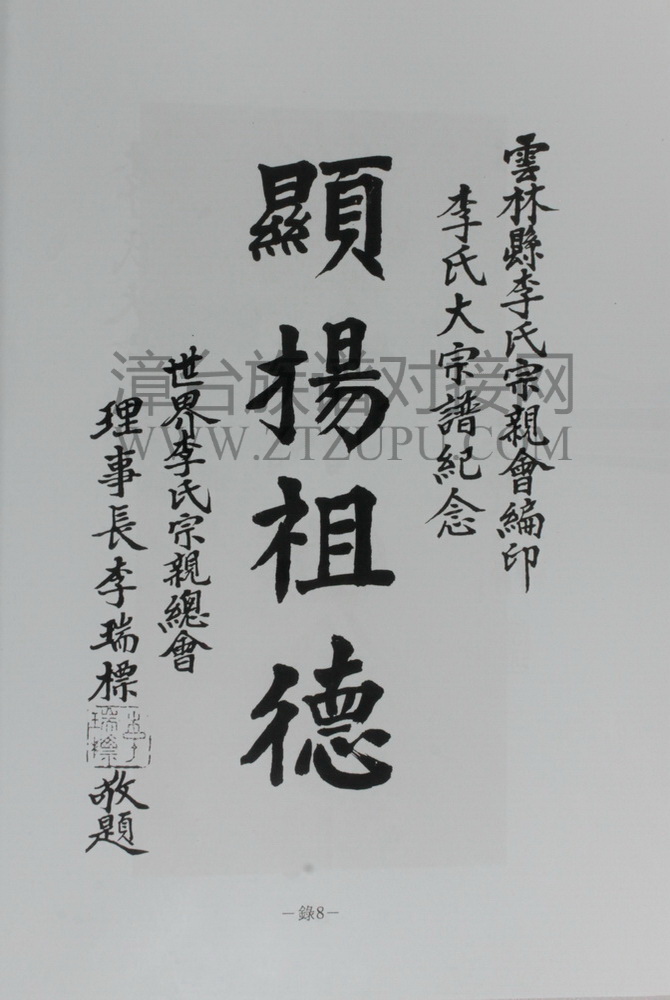 雲林縣李氏宗親會編印
李氏大宗譜紀念
顯揚祖德
世界李氏宗親總會
理事長李瑞標敬題
李瑞標
漳台族谱对接网
WWW.ZTZUPU.COM
－錄8－